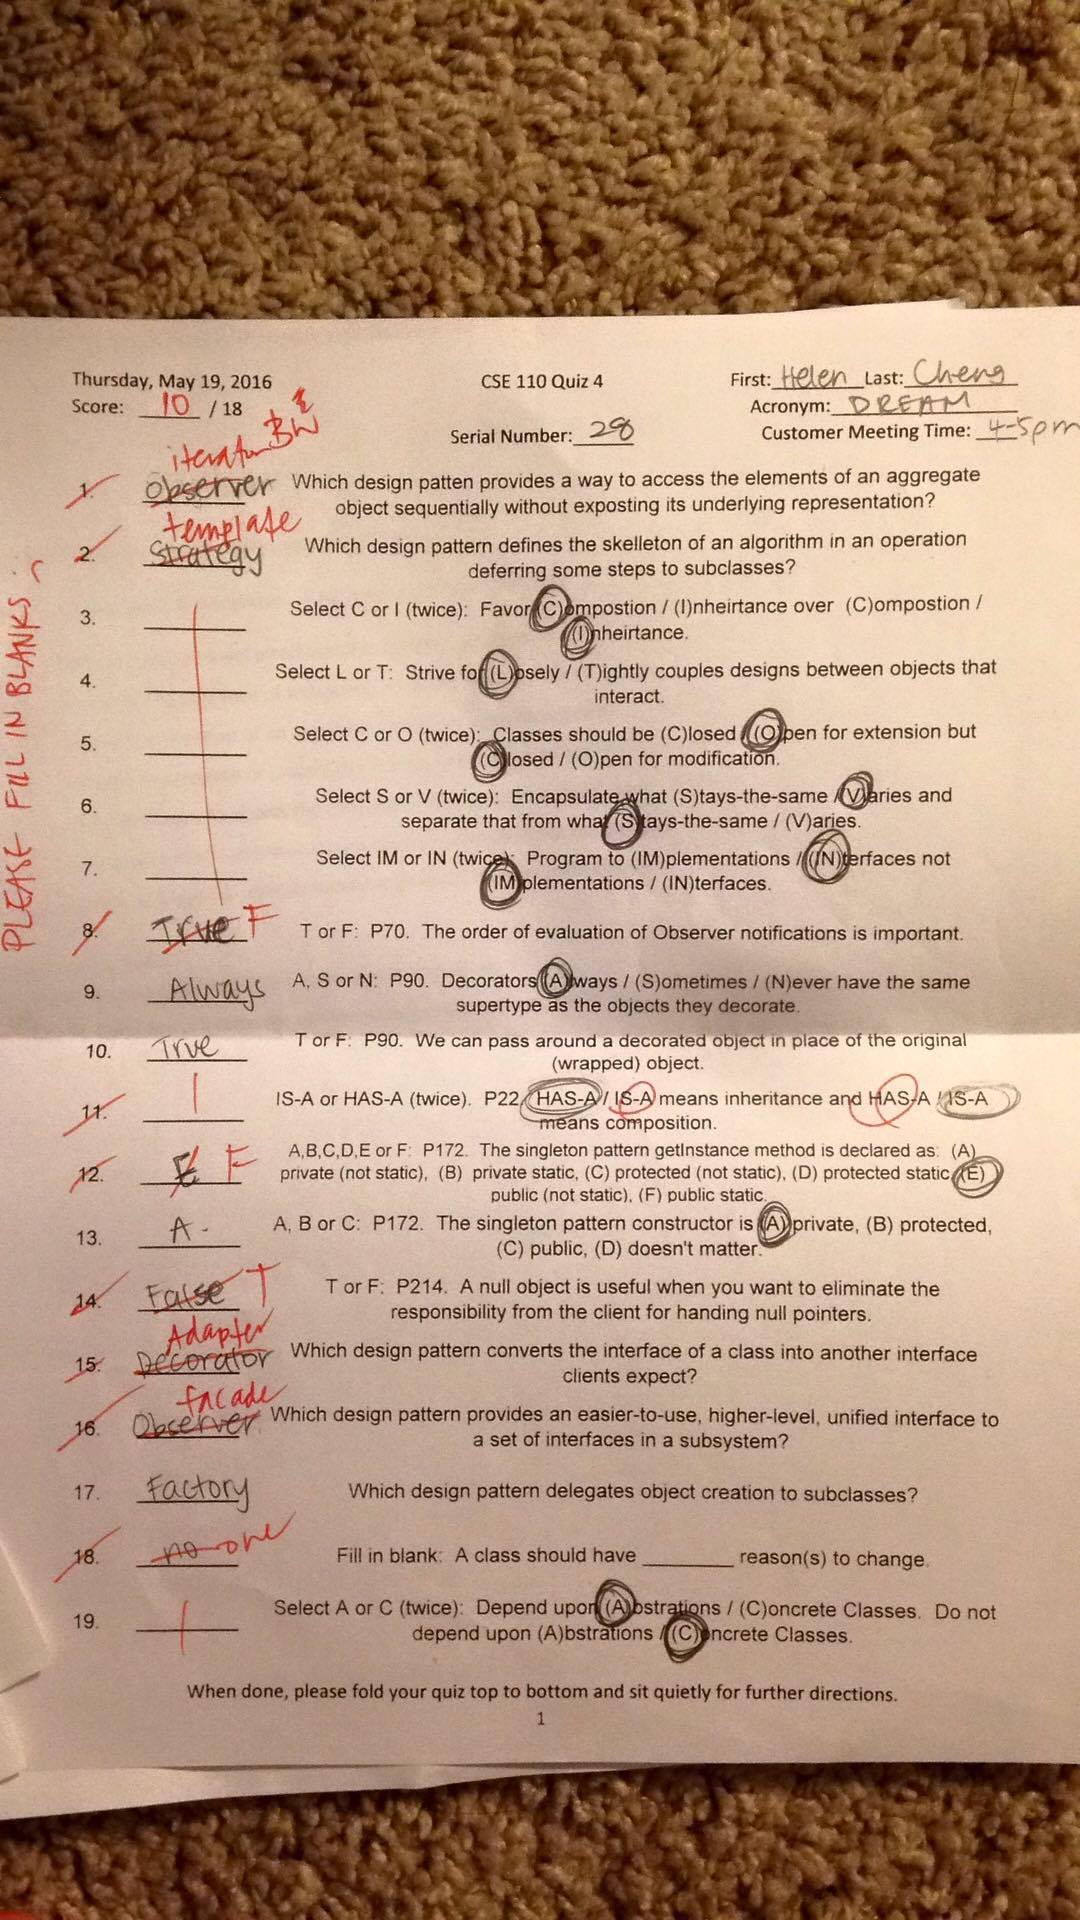 Thursday, May 19, 2016 CSE 110 Quiz 4 First: Helen Last: Cheng
Score: 10 / 18 Acronym: DREAM
Serial Number: 28 Customer Meeting Time: 4-5pm
iterator BW
1. Observer Which design patten provides a way to access the elements of an aggregate
object sequentially without exposing its underlying representation?
template
2. Strategy Which design pattern defines the skelleton of an algorithm in an operation
deferring some steps to subclasses?
PLEASE FILL IN BLANKS
3. Select C or I (twice): Favor (C)ompostion / (I)nheirtance over (C)ompostion /
(I)nheirtance.
4. Select L or T: Strive for (L)osely / (T)ightly couples designs between objects that
interact.
5. Select C or O (twice): Classes should be (C)losed / (O)pen for extension but
(C)losed / (O)pen for modification.
6. Select S or V (twice): Encapsulate what (S)tays-the-same / (V)aries and
separate that from what (S)tays-the-same / (V)aries.
7. Select IM or IN (twice): Program to (IM)plementations / (IN)terfaces not
(IM)plementations / (IN)terfaces.
8. True F T or F: P70. The order of evaluation of Observer notifications is important.
9. Always A, S or N: P90. Decorators (A)lways / (S)ometimes / (N)ever have the same
supertype as the objects they decorate.
10. True T or F: P90. We can pass around a decorated object in place of the original
(wrapped) object.
11. IS-A or HAS-A (twice). P22. HAS-A / IS-A means inheritance and HAS-A / IS-A
means composition.
12. E F A,B,C,D,E or F: P172. The singleton pattern getInstance method is declared as: (A)
private (not static), (B) private static, (C) protected (not static), (D) protected static, (E)
public (not static), (F) public static.
13. A. A, B or C: P172. The singleton pattern constructor is (A) private, (B) protected,
(C) public, (D) doesn't matter.
14. False T T or F: P214. A null object is useful when you want to eliminate the
responsibility from the client for handing null pointers.
Adapter
15. Decorator Which design pattern converts the interface of a class into another interface
clients expect?
facade
16. Observer Which design pattern provides an easier-to-use, higher-level, unified interface to
a set of interfaces in a subsystem?
17. Factory Which design pattern delegates object creation to subclasses?
18. no one Fill in blank: A class should have ________ reason(s) to change.
19. Select A or C (twice): Depend upon (A)bstrations / (C)oncrete Classes. Do not
depend upon (A)bstrations / (C)oncrete Classes.
When done, please fold your quiz top to bottom and sit quietly for further directions.
1